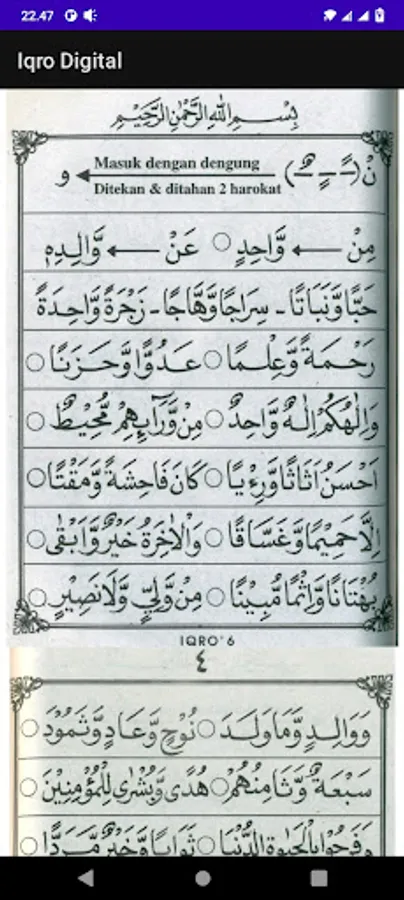 22.47
Iqro Digital
بِسْمِ اللهِ الرَّحْمٰنِ الرَّحِيْمِ
نْ (ـًـ ـٍـ ـٌـ) Masuk dengan dengung و
Ditekan & ditahan 2 harokat
مِنْ وَّاحِدٍ ○ عَنْ وَّالِدِهٖ
حَبًّا وَّنَبَاتًا - سِرَاجًا وَّهَّاجًا - زَجْرَةٌ وَّاحِدَةٌ
رَحْمَةً وَّعِلْمًا ○ عَدُوًّا وَّحَزَنًا ○
وَاِلٰهُكُمْ اِلٰهٌ وَّاحِدٌ ○ مِنْ وَّرَآىِٕهِمْ مُّحِيْطٌ ○
اَحْسَنُ اَثَاثًا وَّرِءْيًا ○ كَانَ فَاحِشَةً وَّمَقْتًا ○
اِلَّا حَمِيْمًا وَّغَسَّاقًا ○ وَالْاٰخِرَةُ خَيْرٌ وَّاَبْقٰى ○
بُهْتَانًا وَّاِثْمًا مُّبِيْنًا ○ مِنْ وَّلِيٍّ وَّلَا نَصِيْرٍ ○
IQRO' 6
٤
وَوَالِدٍ وَّمَا وَلَدَ ○ نُوْحٍ وَّعَادٍ وَّثَمُوْدَ ○
سَبْعَةٌ وَّثَامِنُهُمْ ○ هُدًى وَّبُشْرٰى لِلْمُؤْمِنِيْنَ ○
وَفَرِحُوْا بِالْحَيٰوةِ الدُّنْيَا ○ ثَوَابًا وَّخَيْرٌ مَّرَدًّا ○